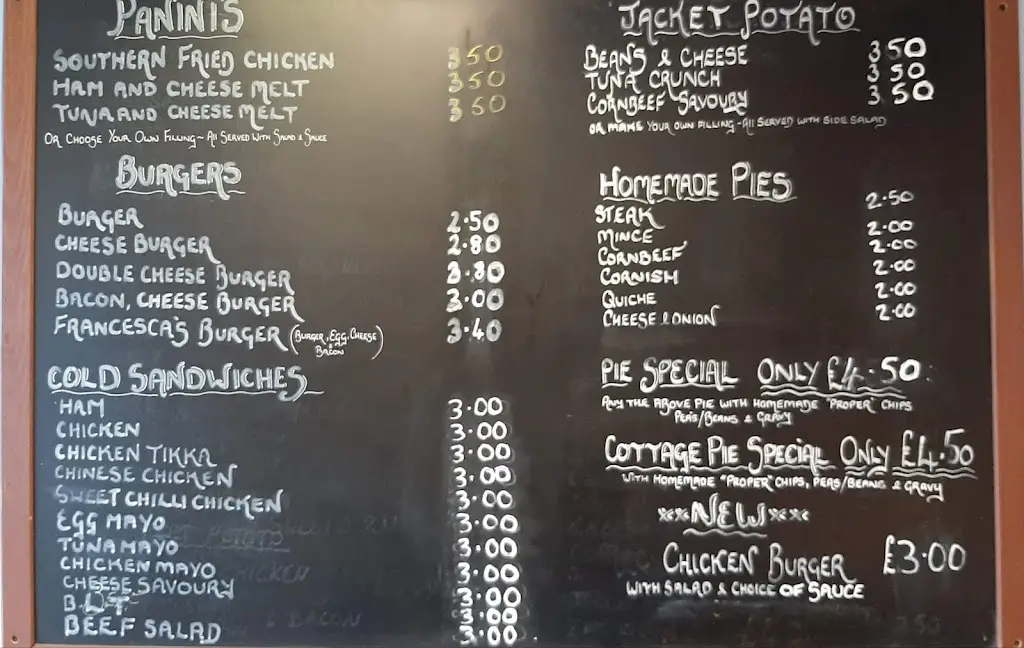 PANINIS
SOUTHERN FRIED CHICKEN 3.50
HAM AND CHEESE MELT 3.50
TUNA AND CHEESE MELT 3.50
OR CHOOSE YOUR OWN FILLING - All SERVED WITH SALAD & SAUCE
BURGERS
BURGER 2.50
CHEESE BURGER 2.80
DOUBLE CHEESE BURGER 3.80
BACON, CHEESE BURGER 3.00
FRANCESCA'S BURGER (BURGER, EGG, CHEESE 3.40
BACON)
COLD SANDWICHES
HAM 3.00
CHICKEN 3.00
CHICKEN TIKKA 3.00
CHINESE CHICKEN 3.00
SWEET CHILLI CHICKEN 3.00
EGG MAYO 3.00
TUNA MAYO 3.00
CHICKEN MAYO 3.00
CHEESE SAVOURY 3.00
BLT 3.00
BEEF SALAD 3.00
JACKET POTATO
BEANS & CHEESE 3.50
TUNA CRUNCH 3.50
CORNBEEF SAVOURY 3.50
OR MAKE YOUR OWN FILLING - All SERVED WITH SIDE SALAD
HOMEMADE PIES
STEAK 2.50
MINCE 2.00
CORNBEEF 2.00
CORNISH 2.00
QUICHE 2.00
CHEESE & ONION 2.00
PIE SPECIAL ONLY £4.50
ANY THE ABOVE PIE WITH HOMEMADE "PROPER" CHIPS
PEAS/BEANS & GRAVY
COTTAGE PIE SPECIAL ONLY £4.50
WITH HOMEMADE "PROPER" CHIPS, PEAS/BEANS & GRAVY
**NEW**
CHICKEN BURGER £3.00
WITH SALAD & CHOICE OF SAUCE